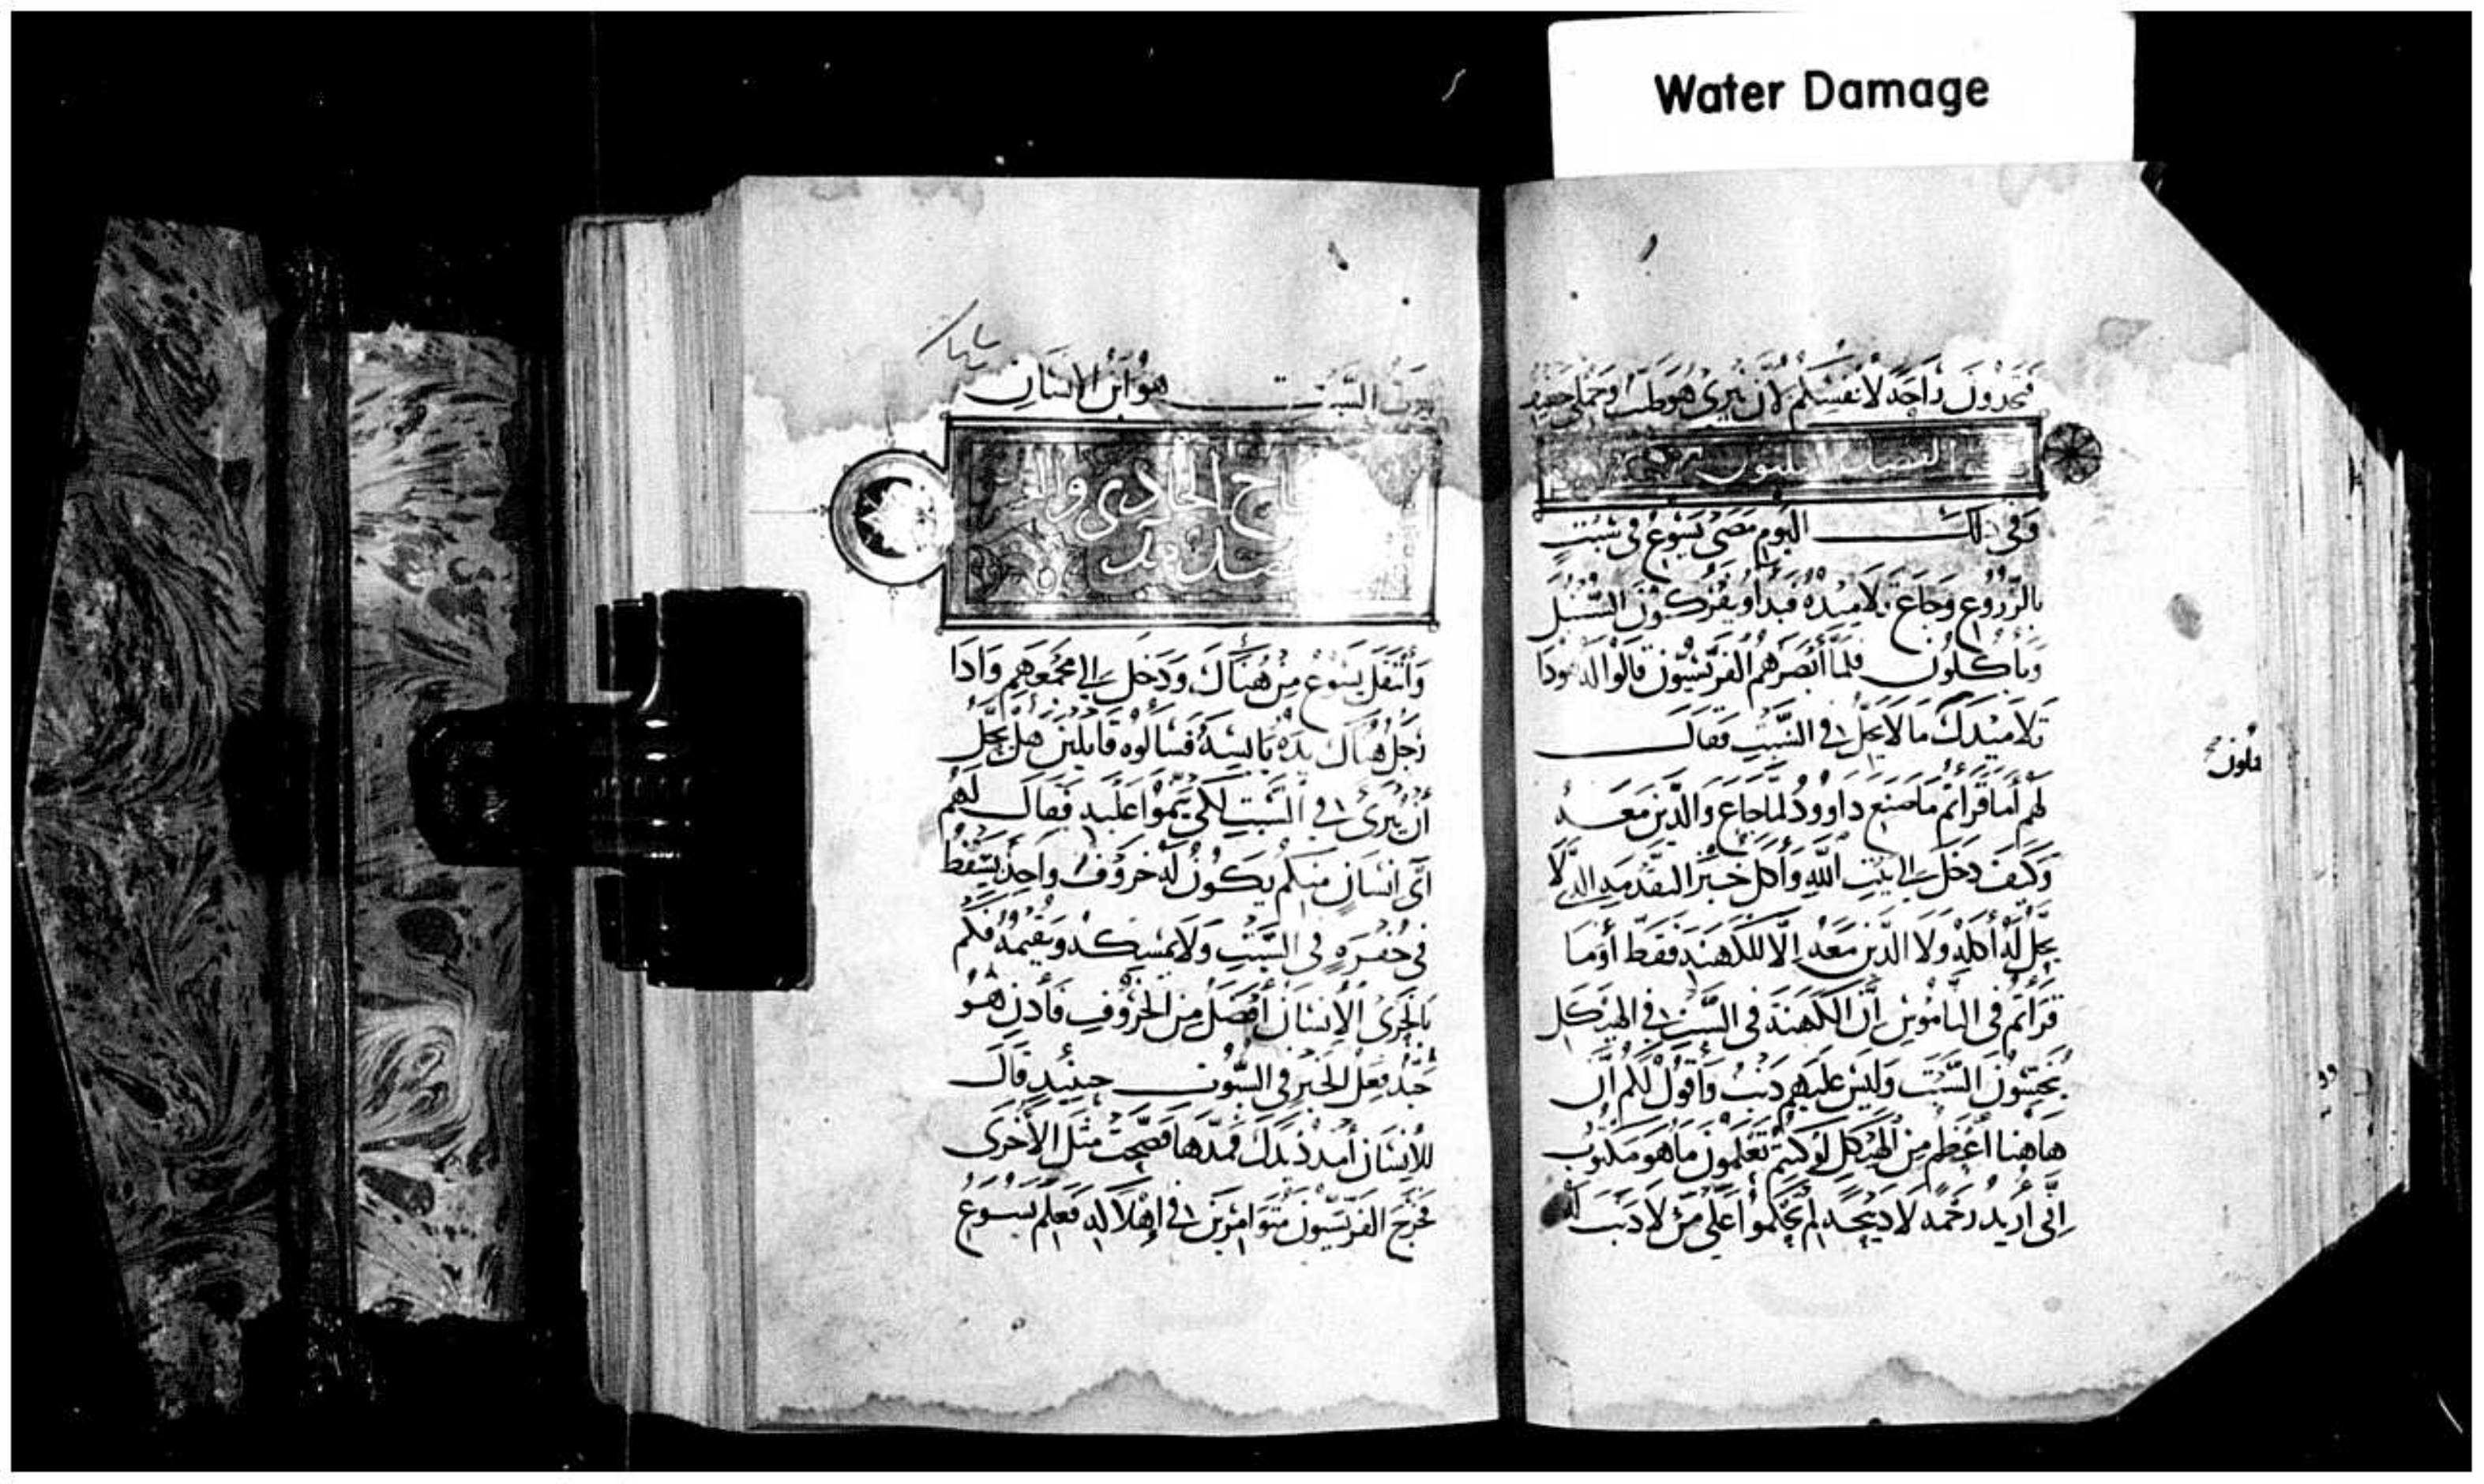 Water Damage
فتجدون راحة لانفسكم لان نيرى هو طيب وحملى خفيف
الفصل الثلثون
وفى ذلك اليوم مضى يسوع فى سبت
بالزروع وجاع تلاميذه فبدأو يفركون السنبل
وياكلون فلما أبصرهم الفريسيون قالوا له هوذا
تلاميذك ما لا يحل فى السبت فقال
لهم أما قرأتم ما صنع داوود لما جاع والذين معه
وكيف دخل الى بيت الله وأكل خبز التقدمه الذى لا
يحل له أكله ولا الذين معه الا للكهنة فقط أو ما
قرأتم فى الناموس أن الكهنة فى السبت فى الهيكل
ينجسون السبت وليس عليهم ذنب وأقول لكم ان
هاهنا أعظم من الهيكل لو كنتم تعلمون ما هو مكتوب
إنى أريد رحمة لا ذبيحة لم تحكموا على من لا ذنب له
يفعلون
رب السبت هو ابن الانسان
الحادى وال
وأنتقل يسوع من هناك ودخل الى مجمعهم واذا
رجل هناك يده يابسة فسألوه قايلين هل يحل
أن يبرئ فى السبت لكى ينموا عليه فقال لهم
أى انسان منكم يكون له خروف واحد يسقط
فى حفرة فى السبت ولا يمسكه ويقيمه فكم
بالحرى الإنسان أفضل من الخروف فأذن هو
جيد فعل الخير فى السبوت حينيذ قال
للإنسان أمدد يدك فمدها فصحت مثل الأخرى
فخرج الفريسيون متوامرين فى إهلاكه فعلم يسوع